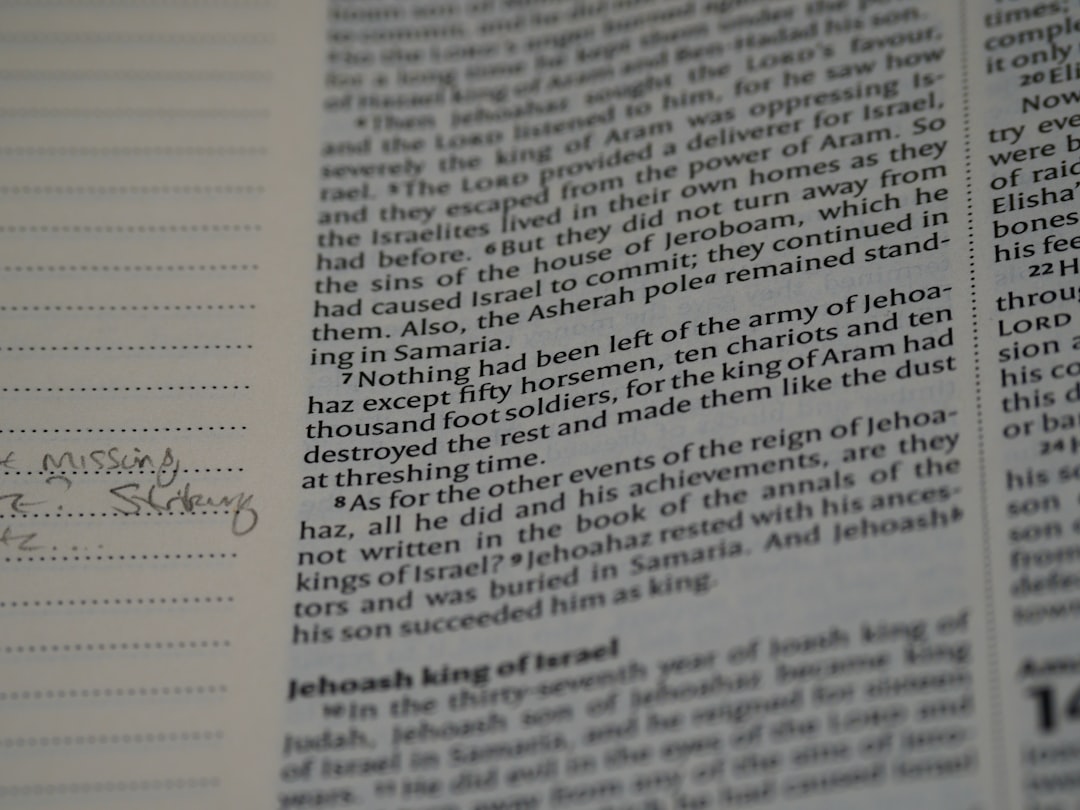 missing
? Striking
for a long time he kept them under the
of Hazael king of Aram and Ben-Hadad his son.
⁴Then Jehoahaz sought the LORD's favour,
and the LORD listened to him, for he saw how
severely the king of Aram was oppressing Is-
rael. ⁵The LORD provided a deliverer for Israel,
and they escaped from the power of Aram. So
the Israelites lived in their own homes as they
had before. ⁶But they did not turn away from
the sins of the house of Jeroboam, which he
had caused Israel to commit; they continued in
them. Also, the Asherah poleᵃ remained stand-
ing in Samaria.
⁷Nothing had been left of the army of Jehoa-
haz except fifty horsemen, ten chariots and ten
thousand foot soldiers, for the king of Aram had
destroyed the rest and made them like the dust
at threshing time.
⁸As for the other events of the reign of Jehoa-
haz, all he did and his achievements, are they
not written in the book of the annals of the
kings of Israel? ⁹Jehoahaz rested with his ances-
tors and was buried in Samaria. And Jehoashᵇ
his son succeeded him as king.
Jehoash king of Israel
¹⁰In the thirty-seventh year of Joash king of
Judah, Jehoash son of Jehoahaz became king
of Israel in Samaria, and he reigned for sixteen
years. ¹¹He did evil in the eyes of the LORD and
times;
comple
it only
²⁰Eli
Now
try eve
were b
of raid
Elisha'
bones
his fee
²²H
throug
LORD
sion a
his co
this d
or ba
²⁴
his so
son
son
from
14